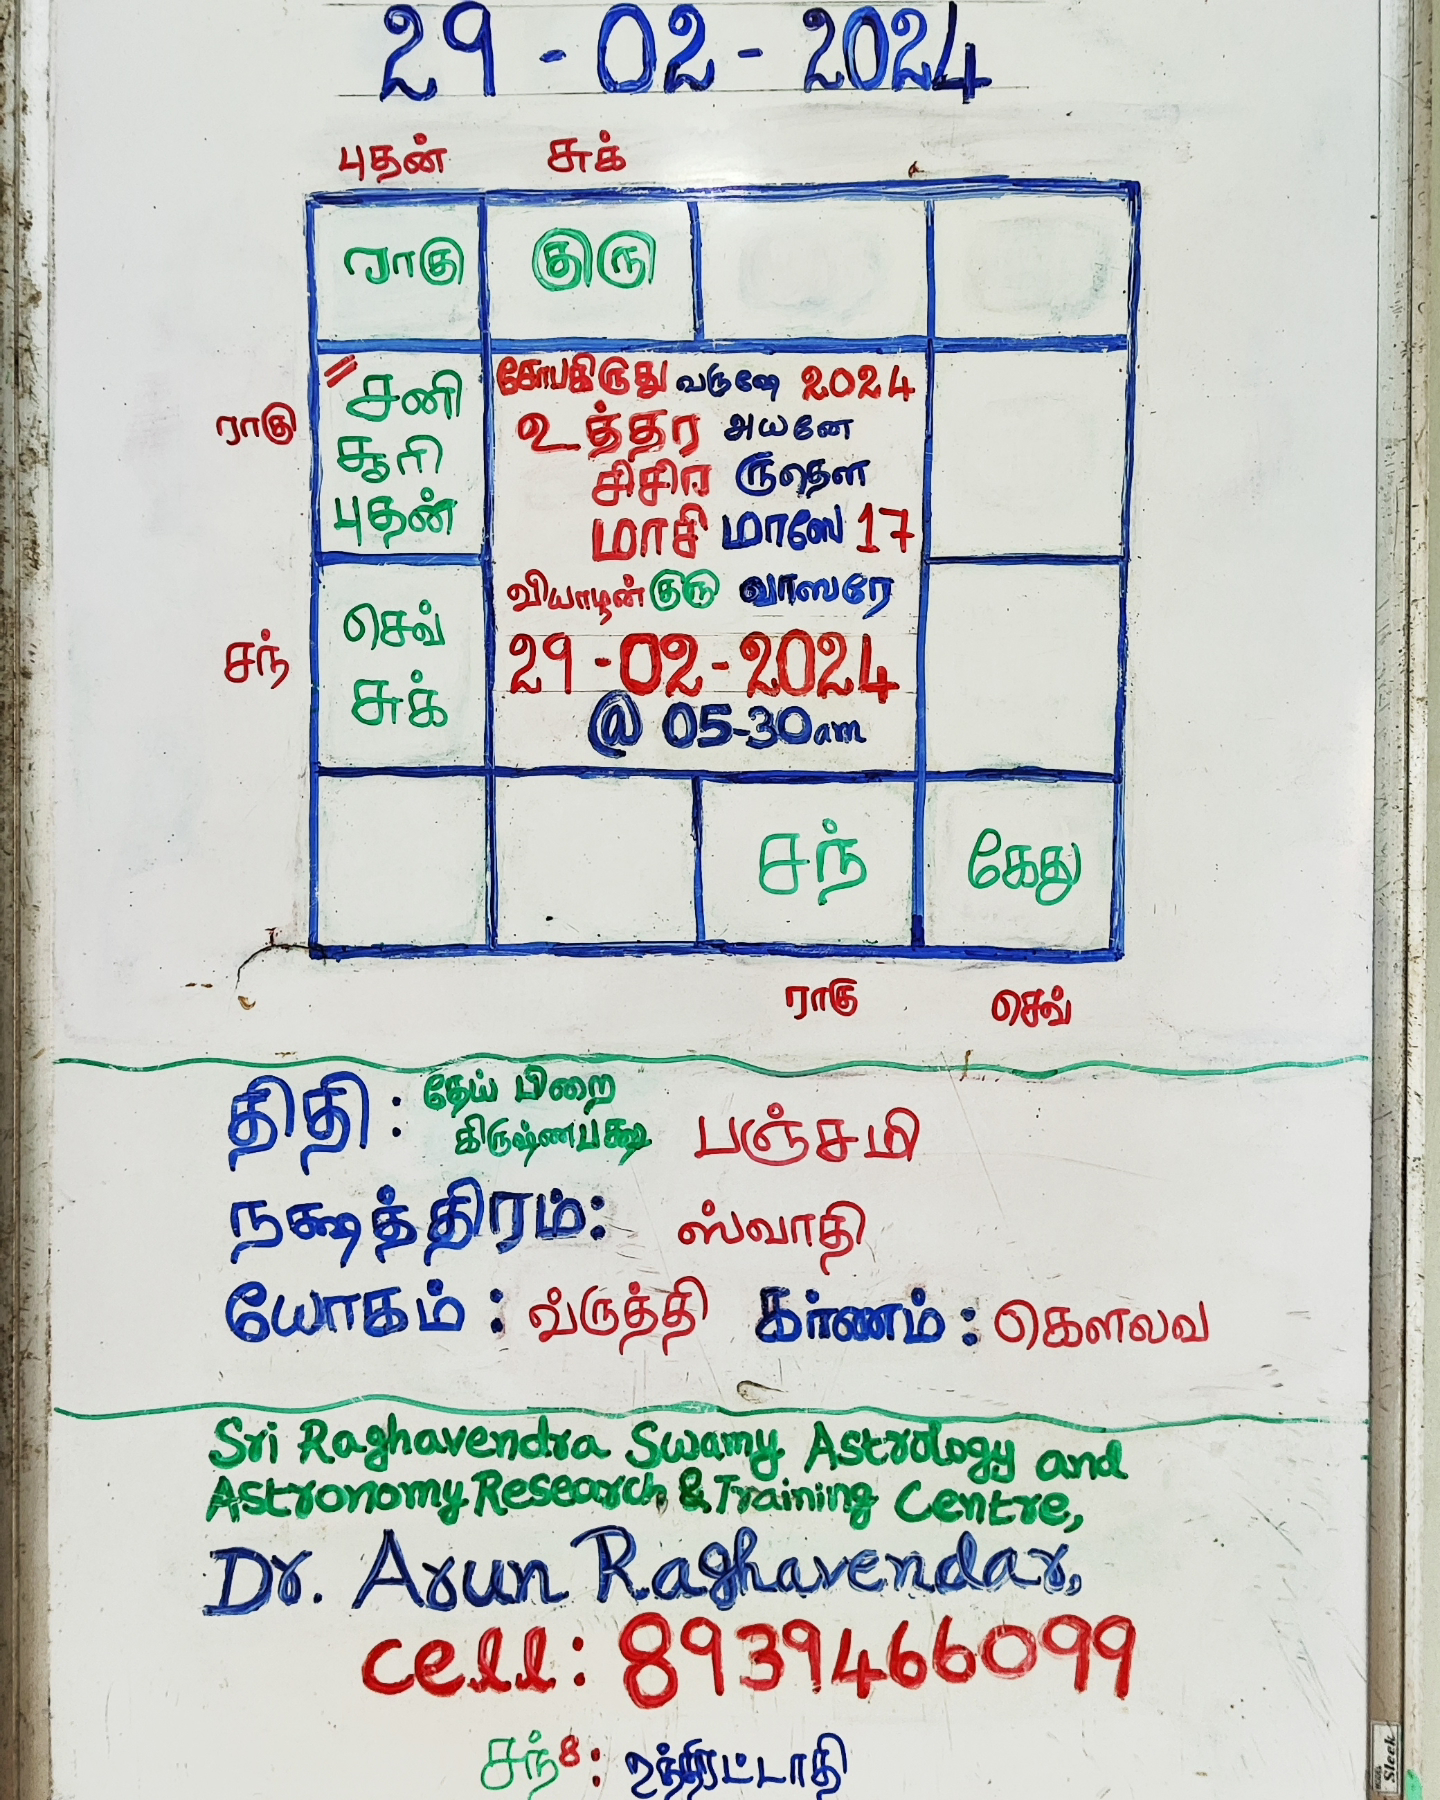 29 - 02 - 2024
புதன் சுக்
ராகு குரு
சனி
ராகு சூரி
புதன்
கோபகிருது வருஷே 2024
உத்தர அயனே
சிசிர ருதௌ
மாசி மாஸே 17
வியாழன் குரு வாஸரே
29-02-2024
@ 05-30am
செவ்
சந் சுக்
சந் கேது
ராகு செவ்
திதி : தேய் பிறை
கிருஷ்ணபக்ஷ பஞ்சமி
நக்ஷத்திரம்: ஸ்வாதி
யோகம் : வ்ருத்தி கர்ணம் : கௌலவ
Sri Raghavendra Swamy Astrology and
Astronomy Research & Training Centre,
Dr. Arun Raghavendar,
cell: 8939466099
சந்8: உத்திரட்டாதி
Sleek